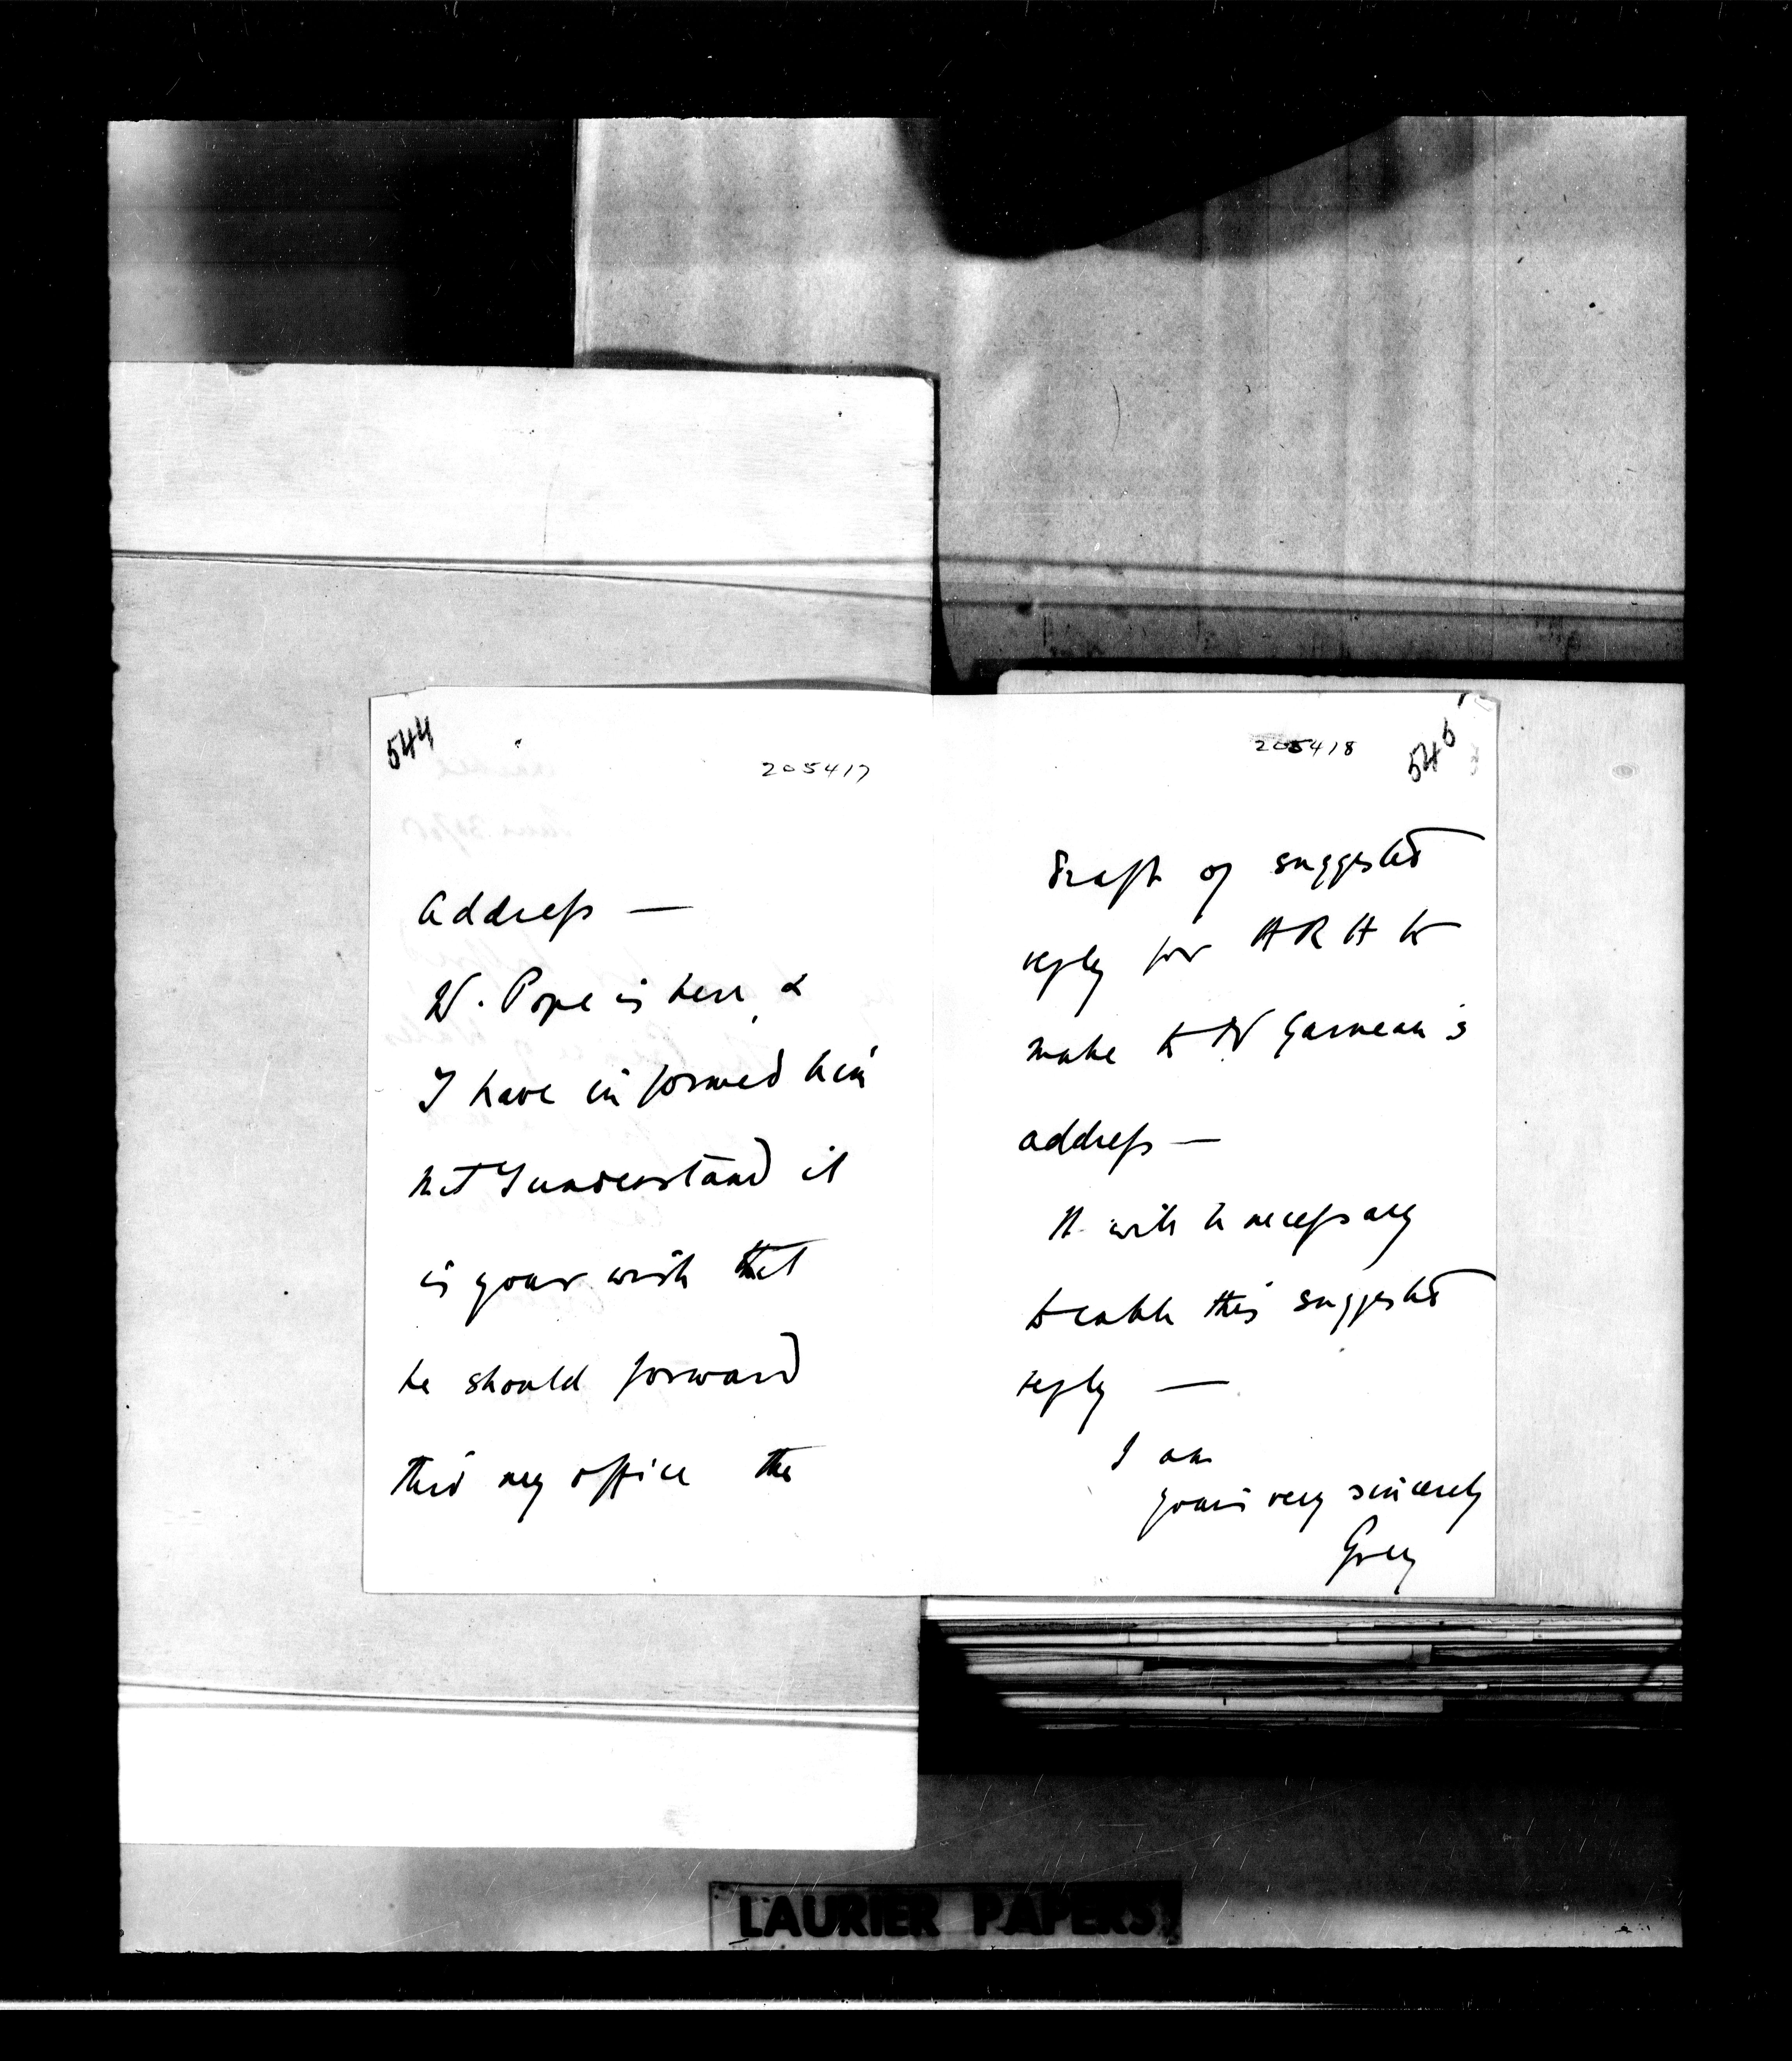 544
205417
address —
Mr. Pope is here, &
I have informed him
that I understand it
is your wish that
he should forward
thro' my office the
205418
545
Draft of suggested
reply for HRH to
make to Mr Garneau's
address —
It will be necessary
to cable this suggested
reply —
I am
yours very sincerely
Grey
LAURIER PAPERS